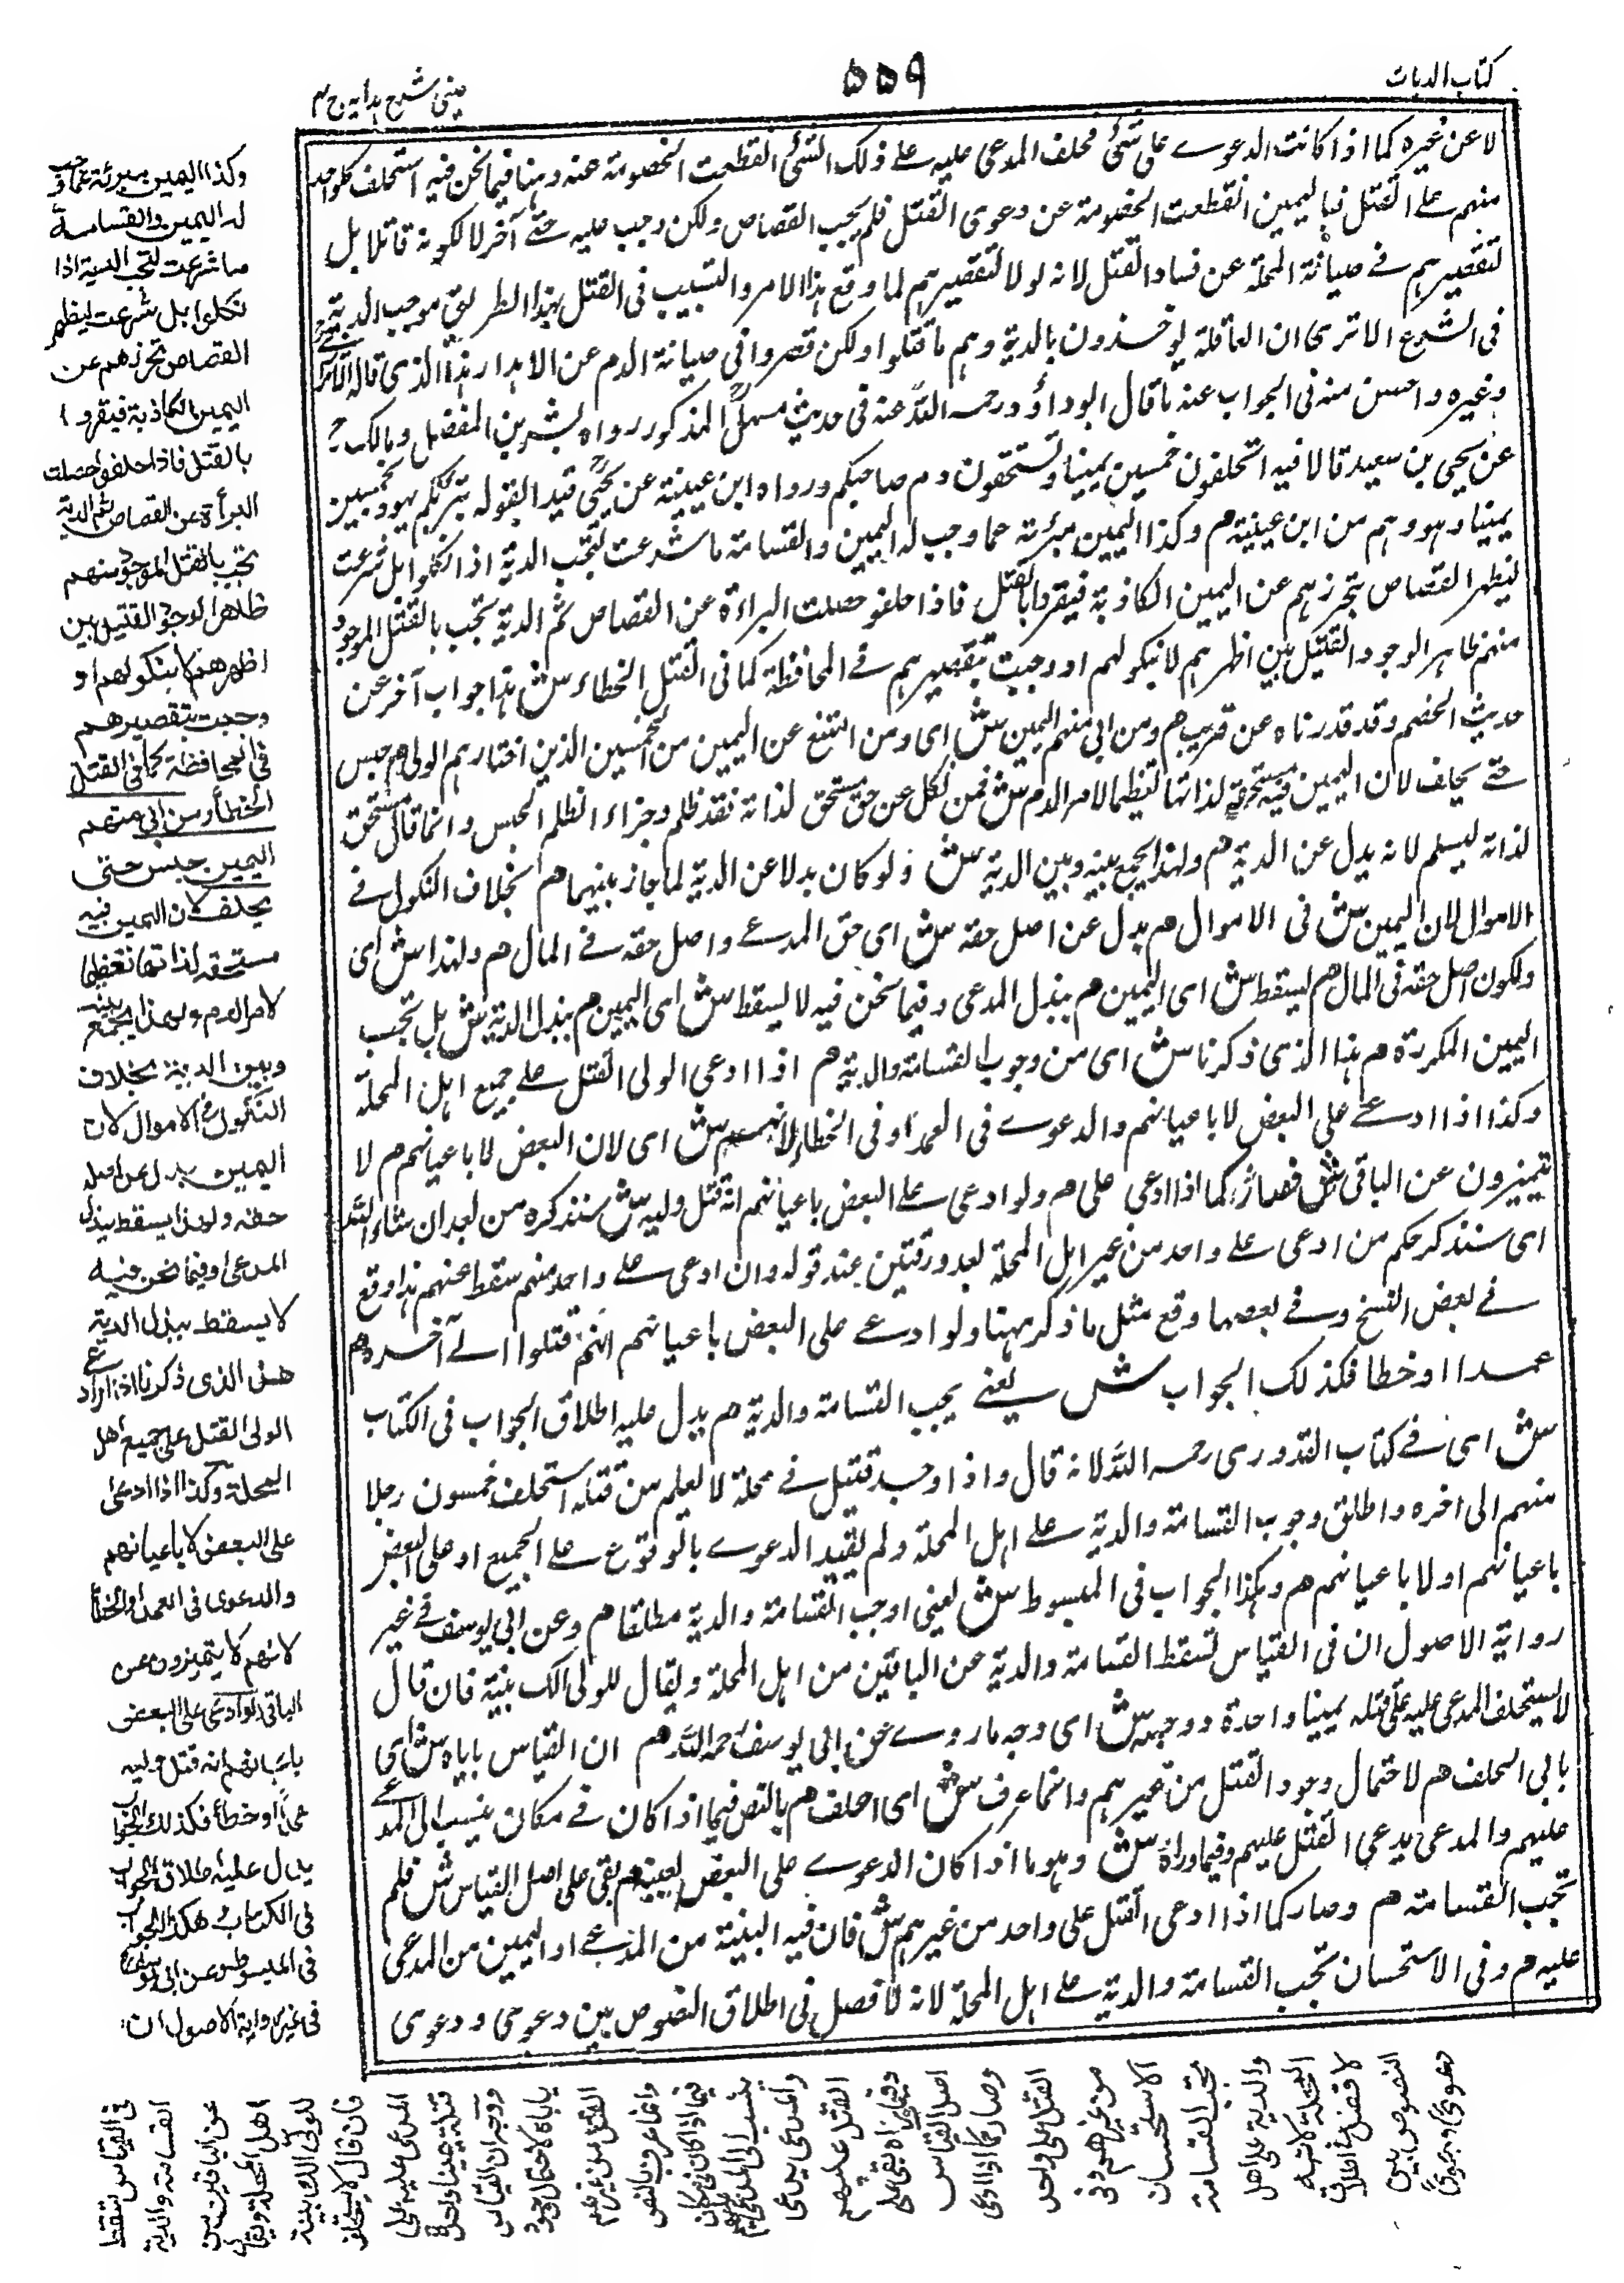 كتاب الديات
۵۵۹
عينى شرح هدايه ج ۴
لا عن غيره كما اذا كانت الدعوے على شئ فحلف المدعى عليه علے ذلك الشئ انقطعت الخصومة عنه وهنا فيما نحن فيه استحلف كلواحد
منهم علے القتل فباليمين انقطعت الخصومة عن دعوى القتل فلم يجب القصاص ولكن وجب عليه حتے آخر لا لكونه قاتلا بل
لتقصيرهم فے صيانة المحلة عن فساد القتل لانه لولا تقصيرهم لما وقع هذا الامر والتسبيب فى القتل بهذا الطريق موجب الدية
فى الشرع الا ترى ان العاقلة يؤخذون بالدية وهم ما قتلوا ولكن قصروا فى صيانة الدم عن الاهدار هذا الذى قاله
وغيره واحسن منه فى الجواب عنه ما قال ابو داؤد رحمه الله عنه فى حديث سهل المذكور رواه بشر بن المفضل ومالك
عن يحيى بن سعيد قالا فيه اتحلفون خمسين يمينا وتستحقون دم صاحبكم ورواه ابن عيينة عن يحيى فبدا بقوله تبرئكم يهود بخمسين
يمينا وهو وهم من ابن عيينة م وكذا اليمين مبرئة عما وجب له اليمين والقسامة ما شرعت لتجب الدية اذا نكلوا بل شرعت
ليظهر القصاص بتحرزهم عن اليمين الكاذبة فيقروا بالقتل فاذا حلفوا حصلت البراءة عن القصاص ثم الدية تجب بالقتل الموجود
منهم ظاهرا لوجود القتيل بين اظهرهم لا بنكولهم او وجبت بتقصيرهم فے المحافظة كما فى القتل الخطاء ش هذا جواب آخر عن
حديث الخصم وقد قررناه عن قريب م ومن ابى منهم اليمين ش اى ومن امتنع عن اليمين من الخمسين الذين اختارهم الولى م حبس
حتے يحلف لان اليمين فيه مستحقة لذاتها تعظيما لامر الدم ش فمن نكل عن حق مستحق لذاته فقد ظلم وجزاء الظلم الحبس وانما قال مستحق
لذاته ليسلم لانه بدل عن الدية م ولهذا يجمع بينه وبين الدية ش ولو كان بدلا عن الدية لما جاز بينهما م بخلاف النكول فے
الاموال لان اليمين ش فى الاموال م بدل عن اصل حقه ش اى حق المدعے واصل حقه فے المال م ولهذا ش اى
ولكون اصل حقه فى المال م يسقط ش اى اليمين م ببذل المدعى وفيما نحن فيه لا يسقط ش اى اليمين م ببذل الدية ش بل تجب
اليمين المكررة م هذا الذى ذكرنا ش اى من وجوب القسامة والدية م اذا ادعى الولى القتل علے جميع اهل المحلة
وكذا اذا ادعے على البعض لا باعيانهم والدعوے فى العمد او فى الخطاء لانهم ش اى لان البعض لا باعيانهم م لا
يتميزون عن الباقى ش فصار كما اذا ادعى على م ولو ادعى علے البعض باعيانهم انه قتل وليه ش سنذكره من بعد ان شاء الله
اى سنذكر حكم من ادعى علے واحد من غير اهل المحلة بعد ورقتين عند قوله وان ادعى علے واحد منهم سقط عنهم هذا وقع
فے بعض النسخ وفے بعضها وقع مثل ما ذكر ههنا ولو ادعے على البعض باعيانهم انهم قتلوا الے آخره م
عمدا او خطا فكذلك الجواب ش يعنے يجب القسامة والدية م يدل عليه اطلاق الجواب فى الكتاب
ش اى فے كتاب القدورى رحمه الله لانه قال واذا وجد قتيل فے محلة لا يعلم من قتله استحلف خمسون رجلا
منهم الى اخره واطلق وجوب القسامة والدية علے اهل المحلة ولم يقيد الدعوے بالوقوع علے الجميع او على البعض
باعيانهم او لا باعيانهم م وهكذا الجواب فى المبسوط ش يعنى اوجب القسامة والدية مطلقا م وعن ابى يوسف فے غير
رواية الاصول ان فى القياس تسقط القسامة والدية عن الباقين من اهل المحلة ويقال للولى الك بينة فان قال
لا يستحلف المدعى عليه على قتله يمينا واحدة ووجهه ش اى وجه ما روے عن ابى يوسف رحمه الله م ان القياس ياباه ش اى
يابى الحلف م لاحتمال وجود القتل من غيرهم وانما عرف ش اى الحلف م بالنص فيما اذا كان فے مكان ينسب الى المدعے
عليهم والمدعى يدعى القتل عليهم وفيما وراءه ش وهو ما اذا كان الدعوے على البعض بعينه م بقى على اصل القياس ش فلم
تجب القسامة م وصار كما اذا ادعى القتل على واحد من غيرهم ش فان فيه البينة من المدعے او اليمين من المدعى
عليه م وفى الاستحسان تجب القسامة والدية علے اهل المحلة لانه لا فصل فى اطلاق النصوص بين دعوى ودعوى
وكذا اليمين مبرئة عما وجب
له اليمين والقسامة
ما شرعت لتجب الدية اذا
نكلوا بل شرعت ليظهر
القصاص بتحرزهم عن
اليمين الكاذبة فيقروا
بالقتل فاذا حلفوا حصلت
البرأة عن القصاص ثم الدية
تجب بالقتل الموجود منهم
ظاهرا لوجود القتيل بين
اظهرهم لا بنكولهم او
وجبت بتقصيرهم
فى المحافظة كما فى القتل
الخطأ ومن ابى منهم
اليمين حبس حتى
يحلف لان اليمين فيه
مستحقة لذاتها تعظيما
لامر الدم ولهذا يجمع بينه
وبين الدية بخلاف
النكول فے الاموال لان
اليمين بدل عن اصل
حقه ولهذا يسقط ببذل
المدعى وفيما نحن فيه
لا يسقط ببذل الدية
هذا الذى ذكرنا اذا ادعے
الولى القتل على جميع اهل
المحلة وكذا اذا ادعى
على البعض لا باعيانهم
والدعوى فى العمد او الخطأ
لانهم لا يتميزون عن
الباقى ولو ادعى على البعض
باعيانهم انه قتل وليه
عمدا او خطأ فكذلك الجواب
يدل عليه اطلاق الجواب
فى الكتاب وهكذا الجواب
فى المبسوط وعن ابى يوسف
فى غير رواية الاصول ان
فى القياس تسقط
القسامة والدية
عن الباقين من
اهل المحلة ويقال
للولى الك بينة
فان قال لا يستحلف
المدعى عليه على
قتله يمينا واحدة
ووجهه ان القياس
ياباه لاحتمال وجود
القتل من غيرهم
وانما عرف بالنص
فيما اذا كان فى مكان
ينسب الى المدعى عليهم
والمدعى يدعى
القتل عليهم
وفيما وراءه بقى على
اصل القياس
وصار كما اذا ادعى
القتل على واحد
من غيرهم وفى
الاستحسان
تجب القسامة
والدية على اهل
المحلة لانه
لا فصل فى اطلاق
النصوص بين
دعوى ودعوى